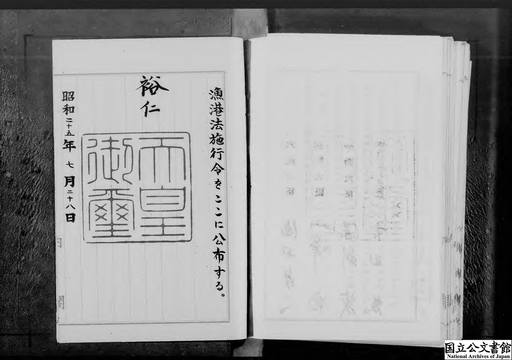 漁港法施行令をここに公布する。
裕仁
天皇御璽
昭和二十五年七月二十八日
国立公文書館
National Archives of Japan